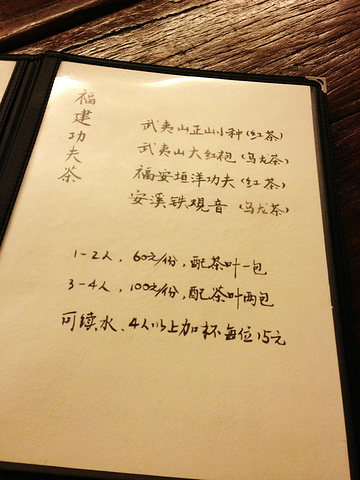 福建功夫茶
武夷山正山小种(红茶)
武夷山大红袍(乌龙茶)
福安垣洋功夫(红茶)
安溪铁观音(乌龙茶)
1-2人,60元/份,配茶叶一包
3-4人,100元/份,配茶叶两包
可续水、4人以上加杯每位15元